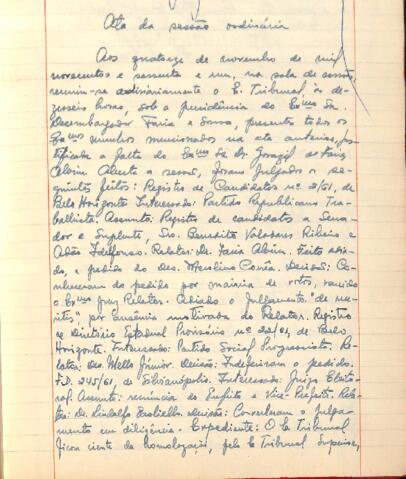 Ata da sessão ordinária
Aos quatorze de novembro de mil
novecentos e sessenta e um, na sala de sessões,
reuniu-se ordinariamente o E. Tribunal, às de-
zesseis horas, sob a presidência do Exmo Sr.
Desembargador Faria e Sousa, presentes todos os
Exmos membros mencionados na ata anterior, jus-
tificada a falta do Exmo Sr. Dr. Faria
Alvim. Aberta a sessão, foram julgados os se-
guintes feitos: Registro de Candidatos nº 2/61, de
Belo Horizonte. Interessado: Partido Republicano Tra-
balhista. Assunto: Registro de candidatos a Sena-
dor e Suplente, Srs. Benedito Valadares Ribeiro e
Adão Ildefonso. Relator: Dr. Faria Alvim. Feito adia-
do, a pedido do Des. Merolino Corrêa. Decisão: Co-
nheceram do pedido por maioria de votos, vencido
o Exmo Juiz Relator. Adiado o julgamento "de me-
ritis", por ausência motivada do Relator. Registro
de Diretório Estadual Provisório nº 22/61, de Belo
Horizonte. Interessado: Partido Social Progressista. Re-
lator: Des. Mello Júnior. Decisão: Indeferiram o pedido.
F.D. 245/61, de Silvianópolis. Interessado: Juízo Eleito-
ral. Assunto: renúncia do Prefeito e Vice-Prefeito. Rela-
tor: Dr. Lindolfo Decisão: Converteram o julga-
mento em diligência. Expediente: O E. Tribunal
ficou ciente da homologação, pelo E. Tribunal Superior,